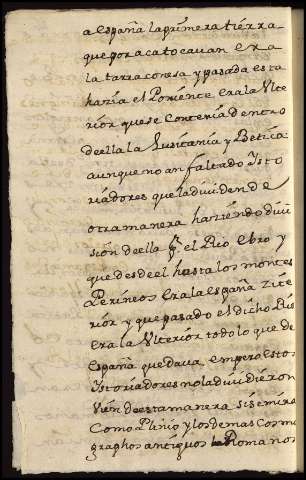 a españa la primera tierra
que por aca tocauan era
la tarraconesa y pasada esta
hazia el Poniente era la Vlte
rior que se Contenia dentro
de ella la Lusitania y Betica
aunque no an faltado Isto
riadores que la diuiden de
otra manera haziendo diui
sión de ella el Rio Ebro y
que desde el hasta los montes
Perineos era la españa Zite
rior y que pasado el dicho Rio
era la Vlterior todo lo que de
españa quedaua empero estos
Istoriadores no la diuidieron
Vien de esta manera si se mira
Como Plinio y los demas Cosmo
graphos antiguos Romanos